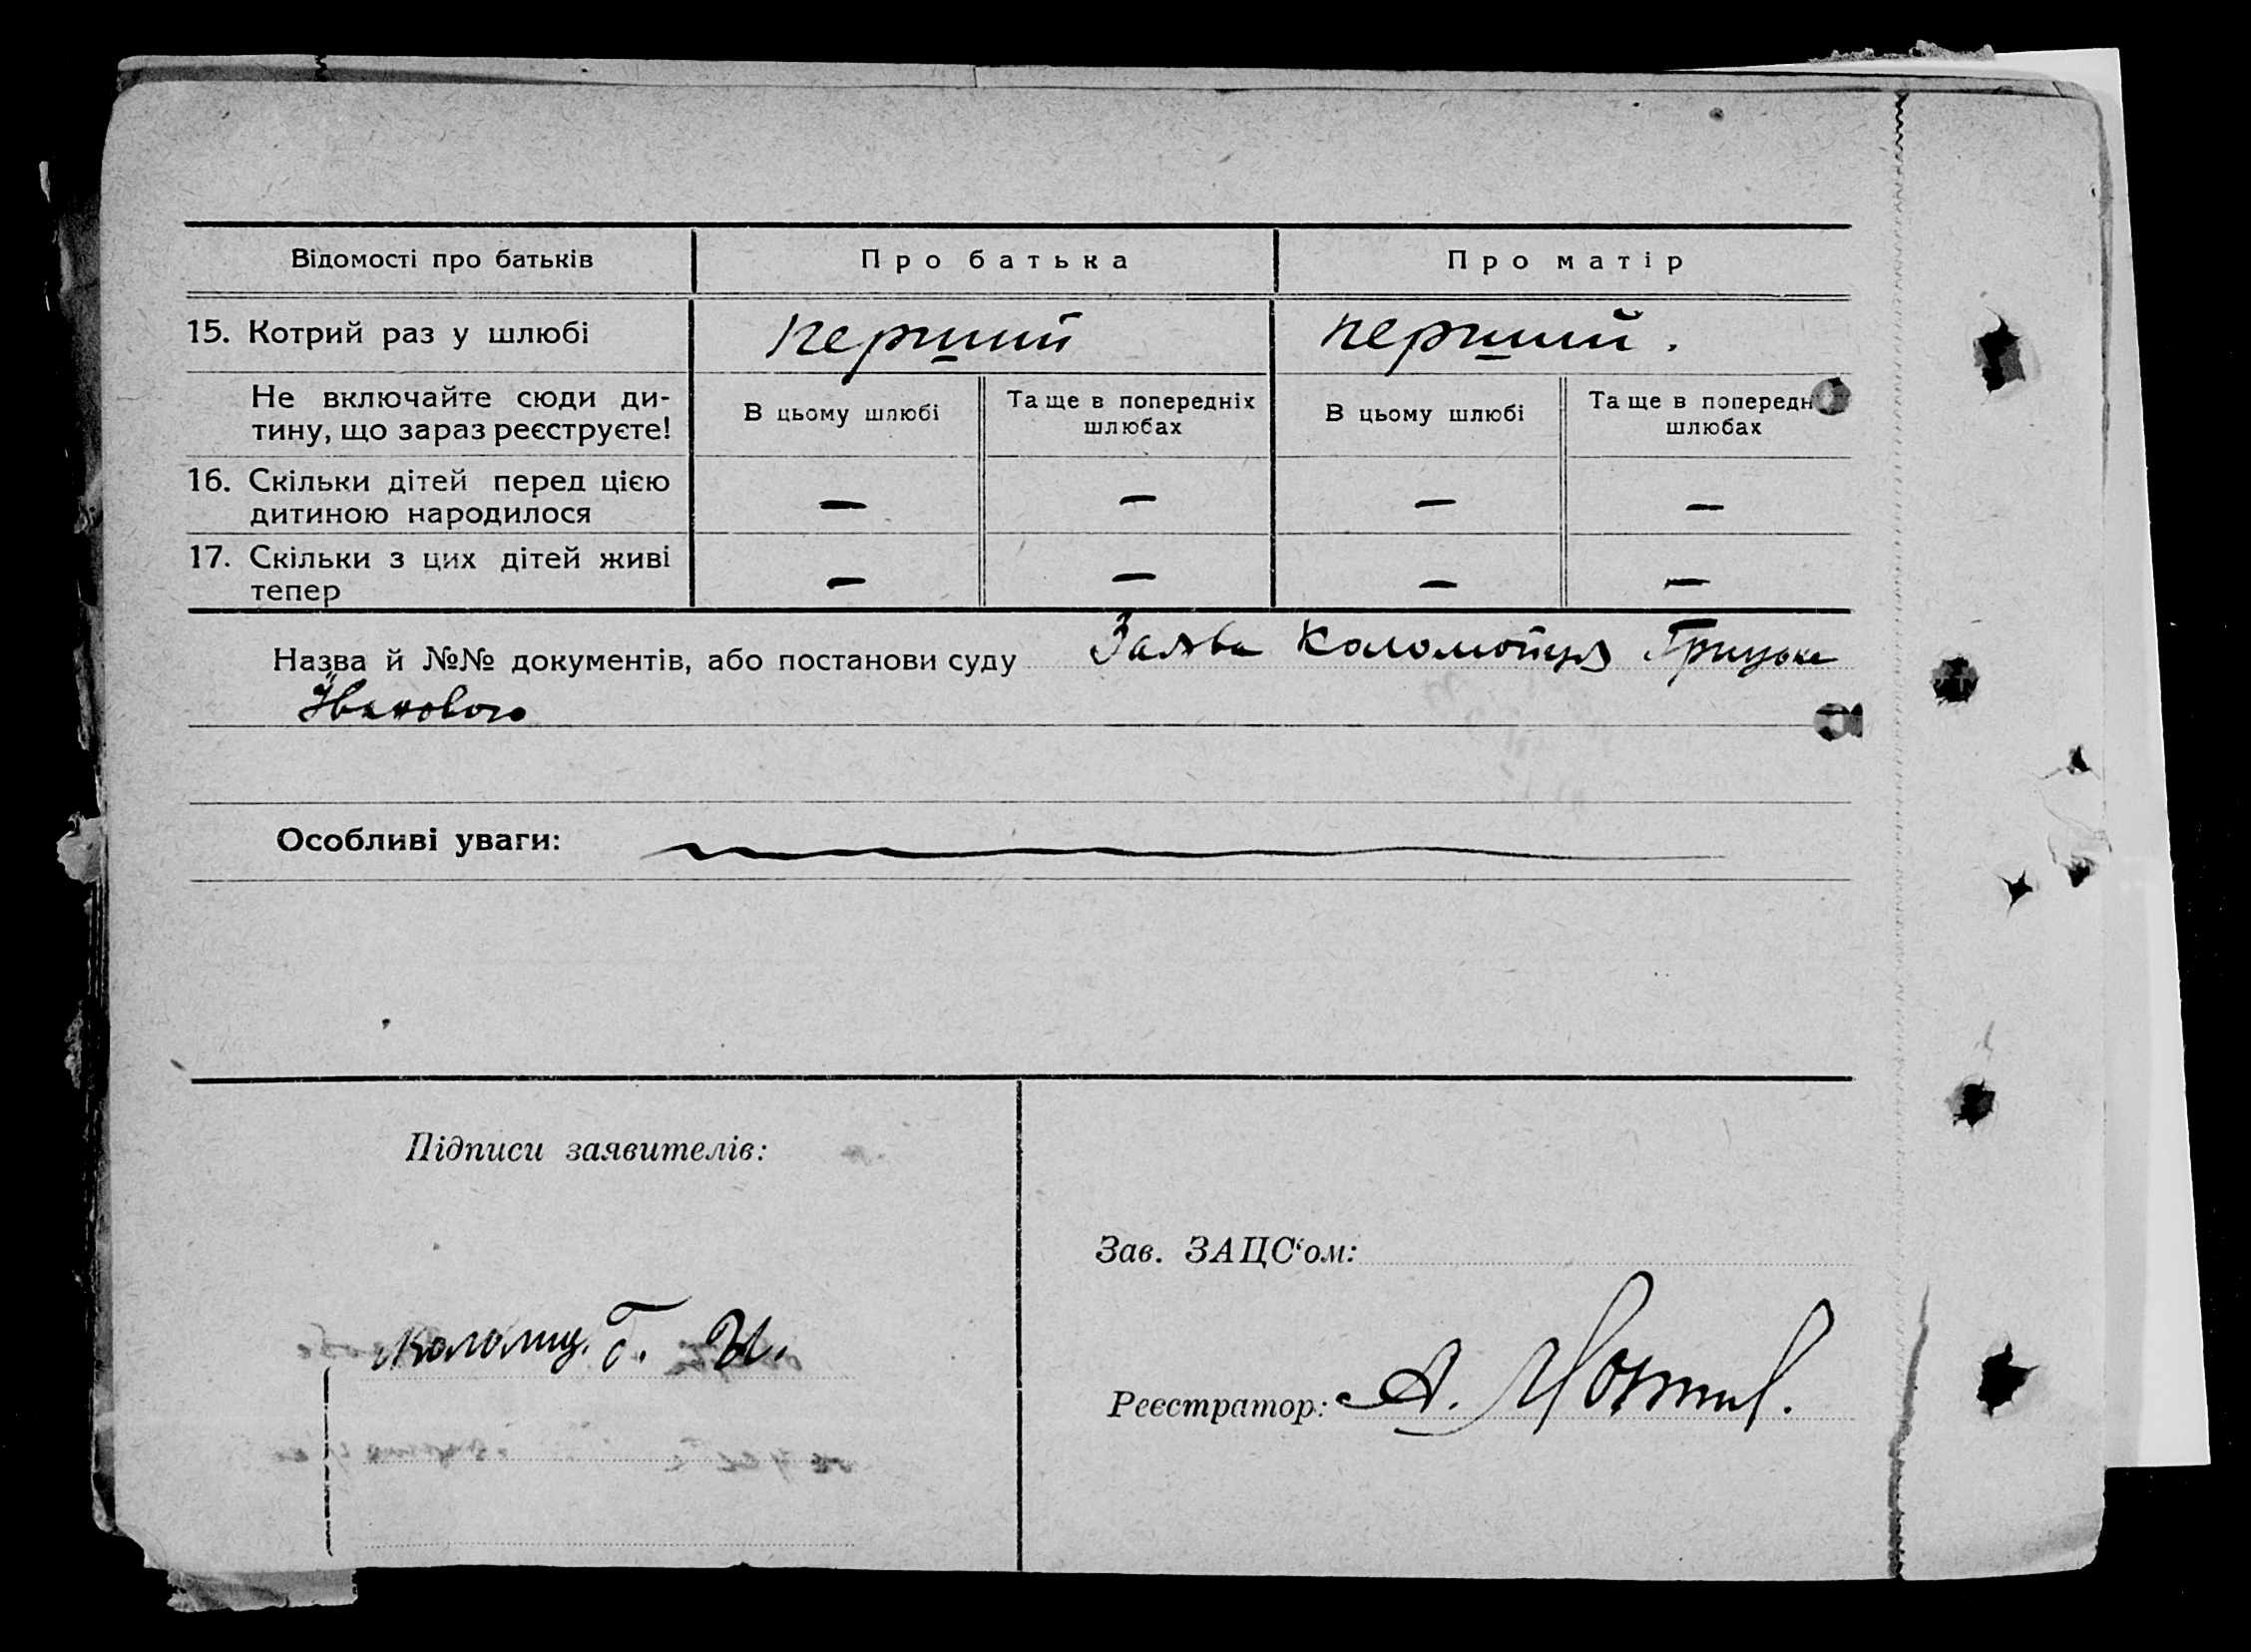 Відомості про батьків
Про батька
Про матір
15. Котрий раз у шлюбі
перший
перший.
Не включайте сюди ди-
тину, що зараз реєструєте!
В цьому шлюбі
Та ще в попередніх
шлюбах
В цьому шлюбі
Та ще в попередн
шлюбах
16. Скільки дітей перед цією
дитиною народилося
— — — —
17. Скільки з цих дітей живі
тепер
— — — —
Назва й №№ документів, або постанови суду Заява Коломойця Грицька
Івановича
Особливі уваги:
Підписи заявителів:
Зав. ЗАЦС‘ом:
Коломиц. Г. И.
Реєстратор: А.